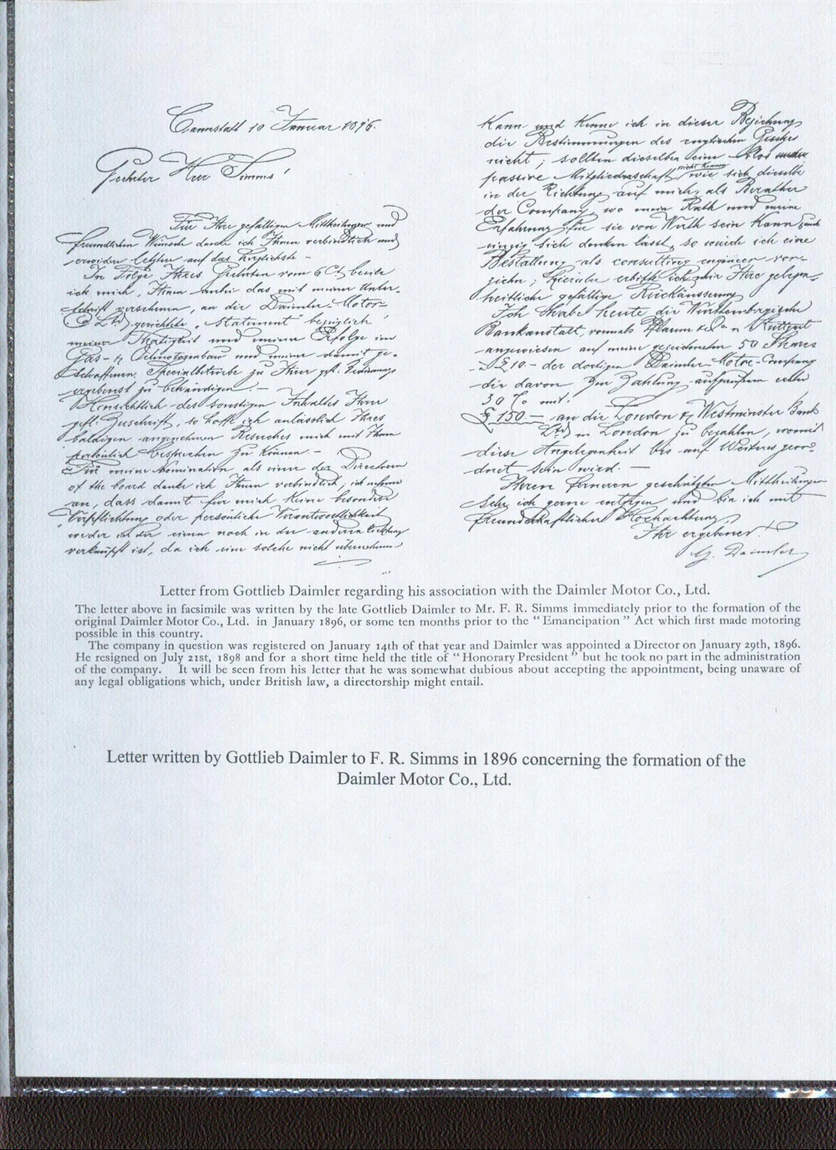 Cannstatt 10 Januar 1896.
Geehrter Herr Simms!
Für Ihre gefälligen Mittheilungen und
freundlichen Wünsche danke ich Ihnen verbindlich und
erwidere letztere auf das Herzlichste. –
In Folge Ihres Geehrten vom 6 Ct. beeile
ich mich, Ihnen anbei das mit meiner Unter-
schrift versehene, an die Daimler-Motor-
Co Ltd. gerichtete, Statement bezüglich
meiner Thätigkeit und meiner Erfolge im
Gas- & Oelmotorenbau und meiner damit ge-
schaffenen Specialbetriebe zu Ihrer gefl.
ergebenst zu behändigen. –
Hinsichtlich des sonstigen Inhaltes Ihrer
gefl. Zuschrift, so hoffe ich anlässlich Ihres
baldigen angenehmen Besuches mich mit Ihnen
persönlich besprechen zu können –
Für meine Nomination als einer der Directoren
of the board danke ich Ihnen verbindlich, ich nehme
an, dass damit für mich keine besondere
Verpflichtung oder persönliche Verantwortlichkeit
weder in der einen noch in der anderen Richtung
verknüpft ist, da ich eine solche nicht übernehmen
kann und kenne ich in dieser Beziehung
die Bestimmungen des englischen Gesetzes
nicht; sollten dieselben eine
passive Mitgliedschaft nicht kennen, wie sich dieselbe
in der Richtung auf mich, als Berather
der Company, wo mein Rath und meine
Erfahrung für sie von Werth sein kann
einzig sich denken lässt, so würde ich eine
Bestallung als consulting engineer vor-
ziehen; hierüber erbitte ich mir Ihre gelegen-
heitliche gefällige Rückäusserung.
Ich habe heute die Württembergische
Bankanstalt, vormals Pflaum & Co in Stuttgart
angewiesen auf meine gezeichneten 50 Shares
à £ 10 – der dortigen Daimler-Motor-Company
die davon zur Zahlung aufgerufenen ersten
30 % mit:
£ 150. – an die London & Westminster Bank
Ltd. in London zu bezahlen, womit
diese Angelegenheit bis auf Weiteres geord-
dnet sein wird. –
Ihren ferneren geschätzten Mittheilungen
sehe ich gerne entgegen und bin ich mit
freundschaftlicher Hochachtung,
Ihr ergebener
G. Daimler
Letter from Gottlieb Daimler regarding his association with the Daimler Motor Co., Ltd.
The letter above in facsimile was written by the late Gottlieb Daimler to Mr. F. R. Simms immediately prior to the formation of the
original Daimler Motor Co., Ltd. in January 1896, or some ten months prior to the "Emancipation" Act which first made motoring
possible in this country.
The company in question was registered on January 14th of that year and Daimler was appointed a Director on January 29th, 1896.
He resigned on July 21st, 1898 and for a short time held the title of "Honorary President" but he took no part in the administration
of the company. It will be seen from his letter that he was somewhat dubious about accepting the appointment, being unaware of
any legal obligations which, under British law, a directorship might entail.
Letter written by Gottlieb Daimler to F. R. Simms in 1896 concerning the formation of the
Daimler Motor Co., Ltd.